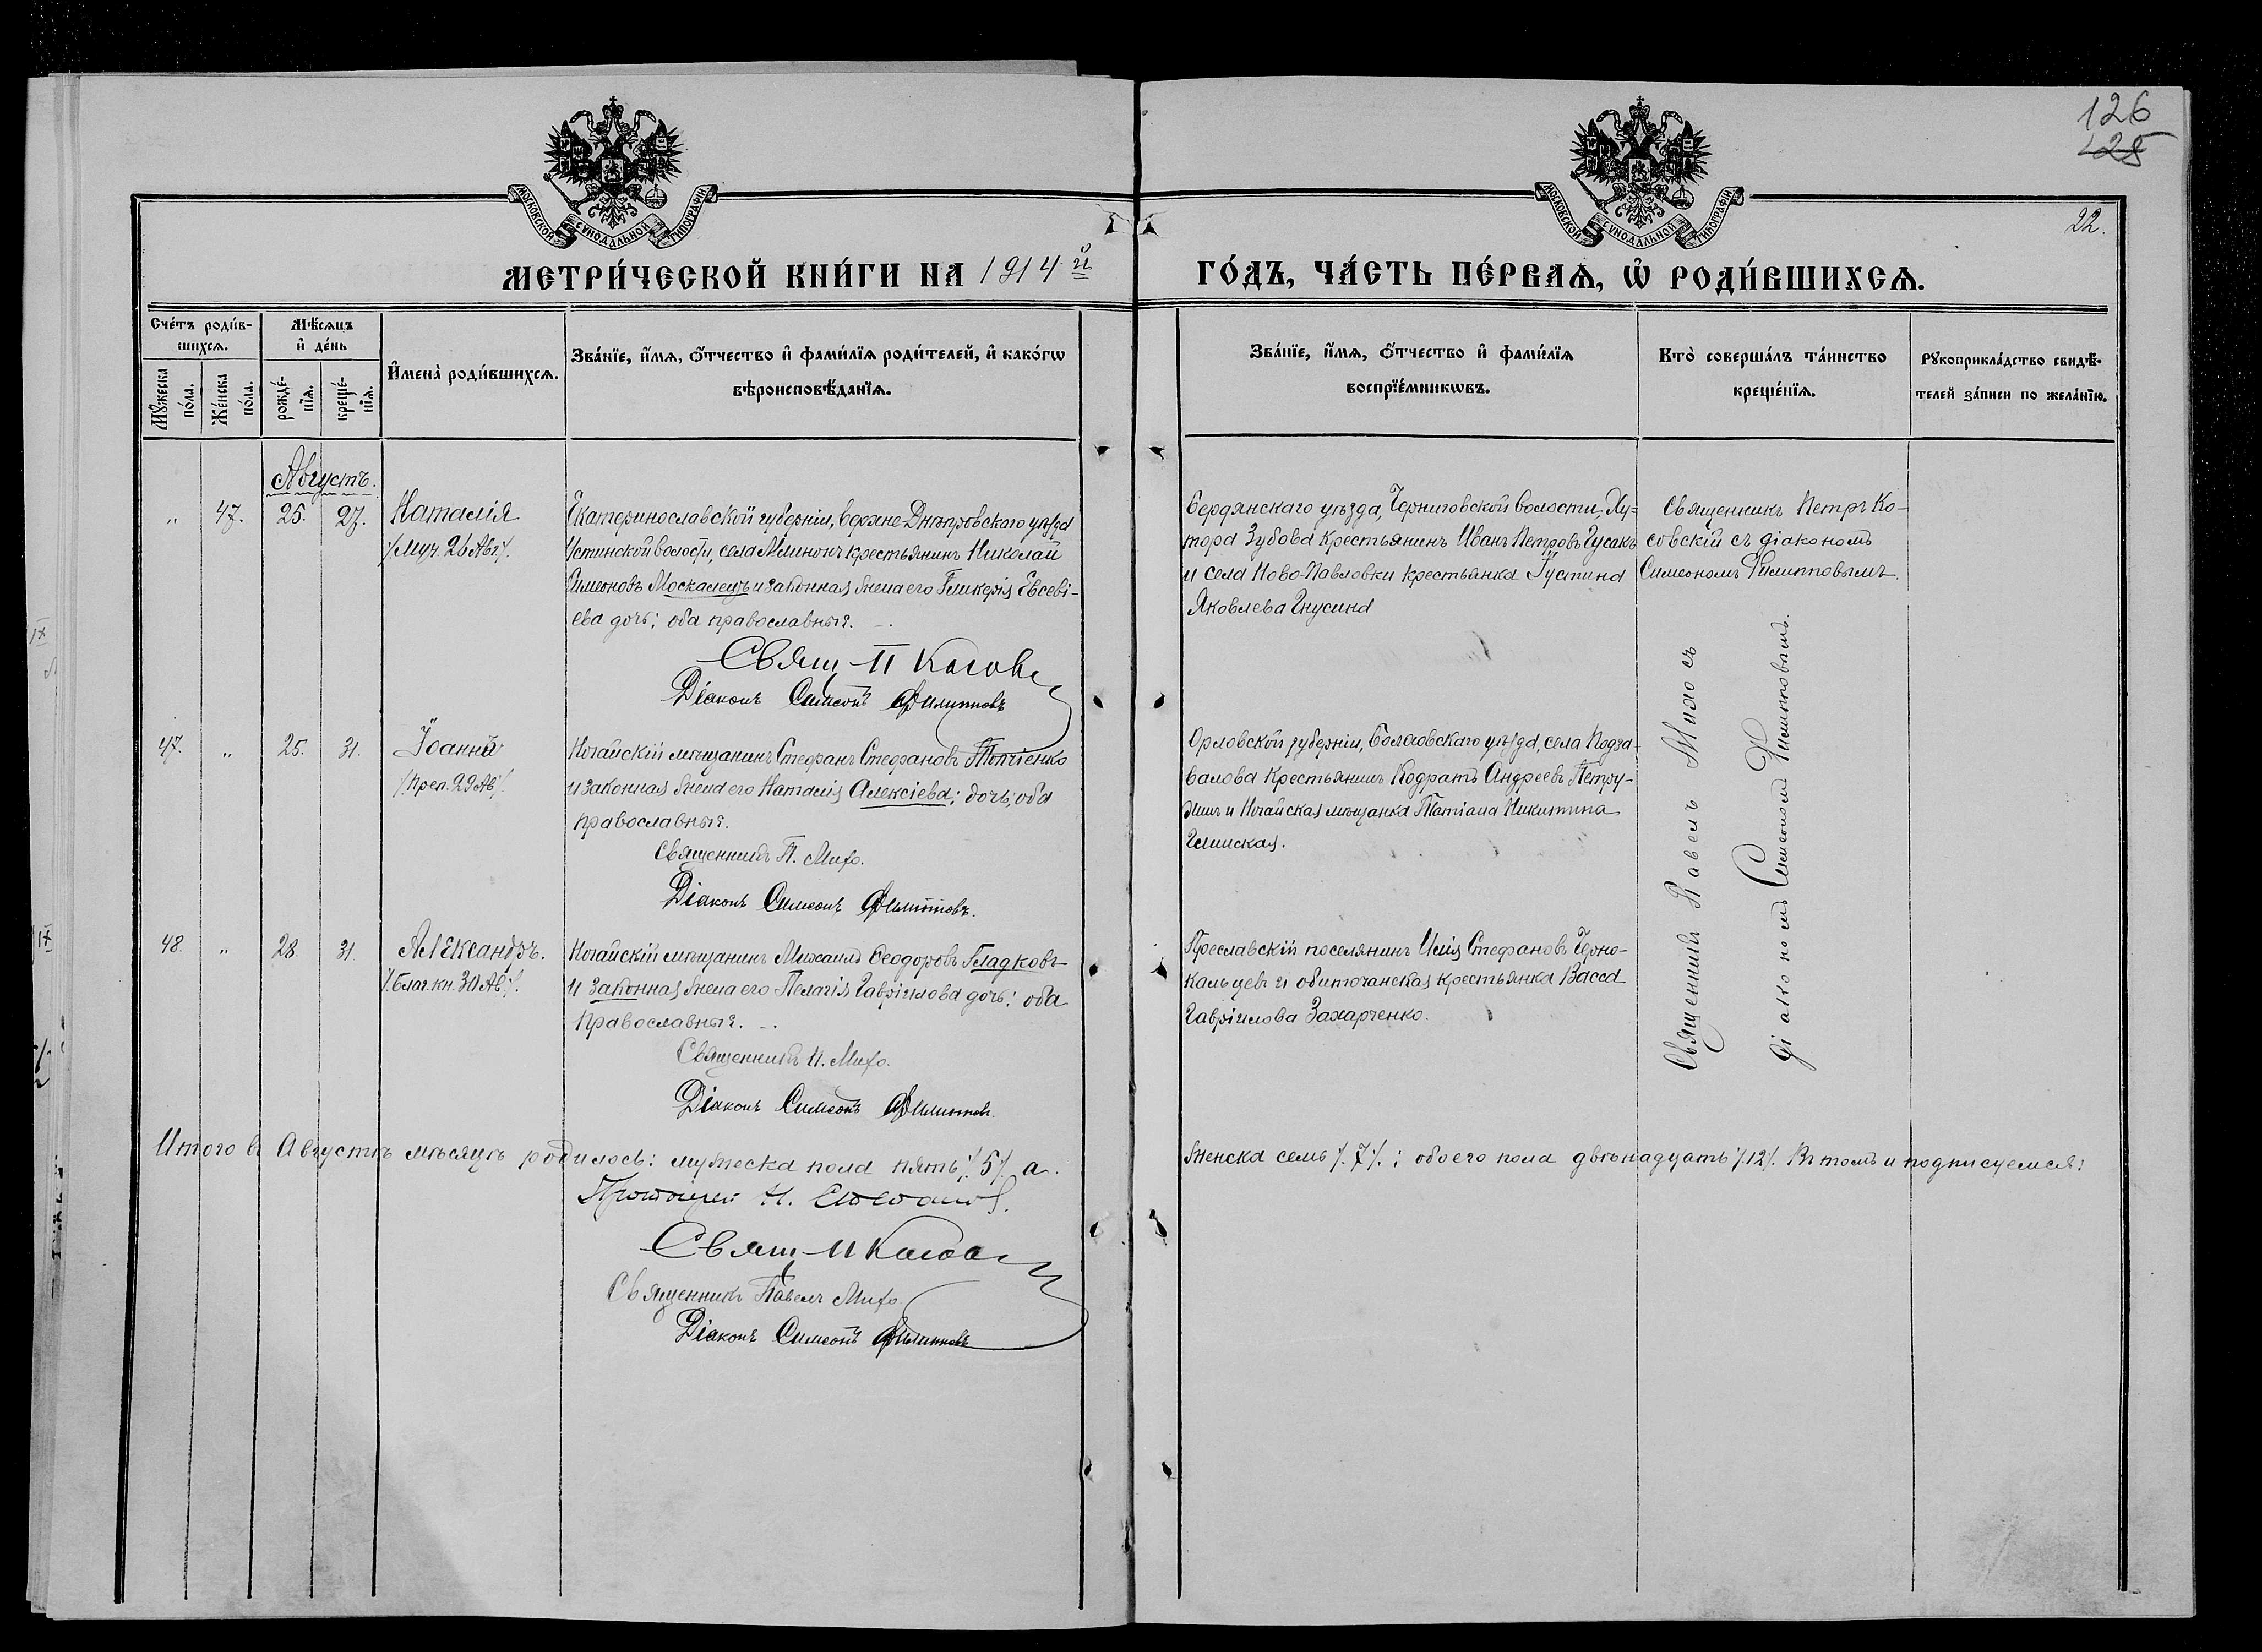 126
125
22.
МОСКОВСКОЙ СѴНОДАЛЬНОЙ ТИПОГРАФІИ
МОСКОВСКОЙ СѴНОДАЛЬНОЙ ТИПОГРАФІИ
МЕТРИ́ЧЕСКОЙ КНИ́ГИ НА 1914 й
ГО́ДЪ, ЧА́СТЬ ПЕ́РВАѦ, Ѡ҆ РОДИ́ВШИХСѦ.
Сче́тъ роди́в-
шихсѧ.
Мꙋ́жеска по́ла.
Же́нска по́ла.
Мѣ́сѧцъ
и҆ де́нь
рожде́-
нїѧ.
креще́-
нїѧ.
И҆мена̀ роди́вшихсѧ.
Зва́нїе, и҆́мѧ, ѻ҆́тчество и҆ фами́лїѧ роди́телей, и҆ како́гѡ
вѣроисповѣ́данїѧ.
Зва́нїе, и҆́мѧ, ѻ҆́тчество и҆ фами́лїѧ
воспрїе́мникѡвъ.
Кто̀ соверша́лъ та́инство
креще́нїѧ.
Рꙋкоприкла́дство свидѣ́-
телей за́писи по жела́нїю.
Августъ.
„ 47. 25. 27.
Наталія
/Муч. 26 Авг/.
Екатеринославской губерніи, Верхне-Днѣпровскаго уѣзда
волости, села крестьянинъ Николай
Симеоновъ Москалецъ и законная жена его Гликерія Евсеві-
ева дочь; оба православныя.
Свящ П Косовс
Діаконъ Симеонъ Филипповъ
Бердянскаго уѣзда, Черниговской волости, Ху-
тора Зубова крестьянинъ Иванъ Петровъ Гусакъ
и села Ново-Павловки крестьянка Іустина
Яковлева Гнусина
Священникъ Петръ Ко-
совскій съ діакономъ
Симеономъ Филипповымъ.
47. „ 25. 31.
Іоаннъ
/Преп. 29 Ав/.
Ногайскій мѣщанинъ Стефанъ Стефановъ Топчіенко
и законная жена его Наталія Алексіева; дочь; оба
православныя.
Священникъ П. Михо.
Діаконъ Симеонъ Филипповъ.
Орловской губерніи, Болховскаго уѣзда, села Подза-
валова крестьянинъ Кодратъ Андреевъ Петру-
и Ногайская мѣщанка Татіана Никитина
Глинская.
48. „ 28. 31.
Александръ.
/Благ. кн. 30 Ав/.
Ногайскій мѣщанинъ Михаилъ Ѳеодоровъ Гладковъ
и законная жена его Пелагія Гавріилова дочь; оба
православныя.
Священникъ П. Михо.
Діаконъ Симеонъ Филипповъ
Преславскій поселянинъ Илія Стефановъ Черно-
кальцевъ и обиточанская крестьянка Васса
Гавріилова Захарченко.
Священникъ Павелъ Михо съ
діакономъ Симеономъ Филипповымъ.
Итого въ Августѣ мѣсяцѣ родилось: мужеска пола пять /5/, а
женска семь /7/; обоего пола двѣнадцать /12/. Въ томъ и подписуемся:
Протоіерей Н.
Свящ П Косов
Священникъ Павелъ Михо
Діаконъ Симеонъ Филипповъ